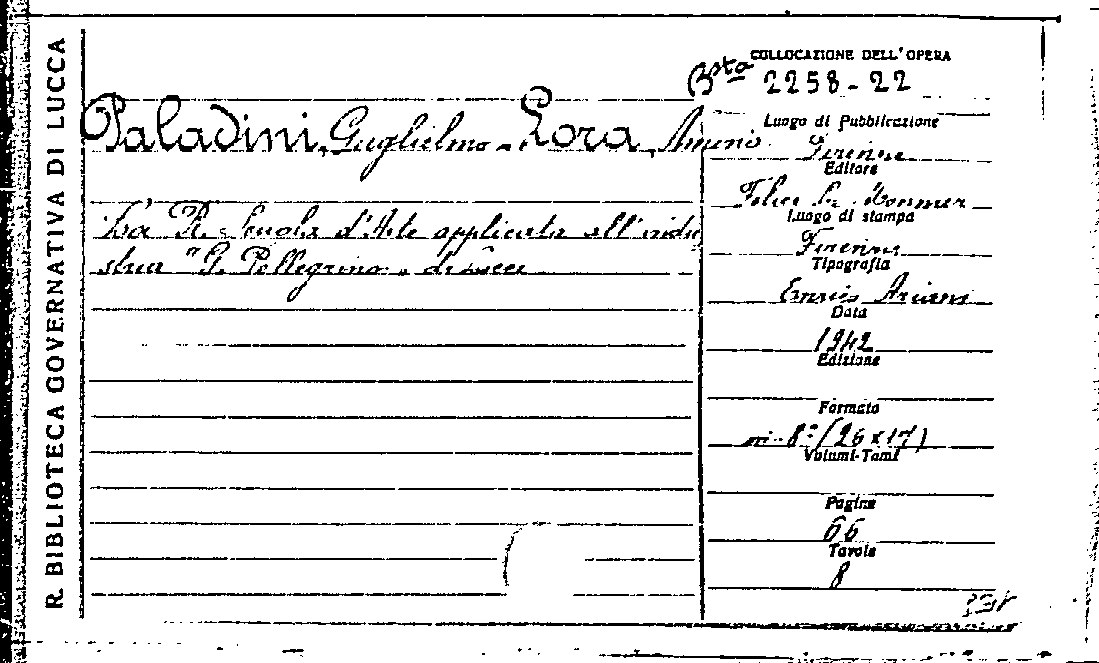 R. BIBLIOTECA GOVERNATIVA DI LUCCA
COLLOCAZIONE DELL'OPERA
Bsta 2258-22
Paladini, Guglielmo - Lora,
La R. Scuola d'Arte applicata all'indu
stria "P. Pellegrino" di Lecce
Luogo di Pubblicazione
Firenze
Editore
Felice Le Monnier
Luogo di stampa
Firenze
Tipografia
Enrico Ariani
Data
1942
Edizione
Formato
in-8° (26 x 17)
Volumi-Tomi
Pagine
66
Tavole
8